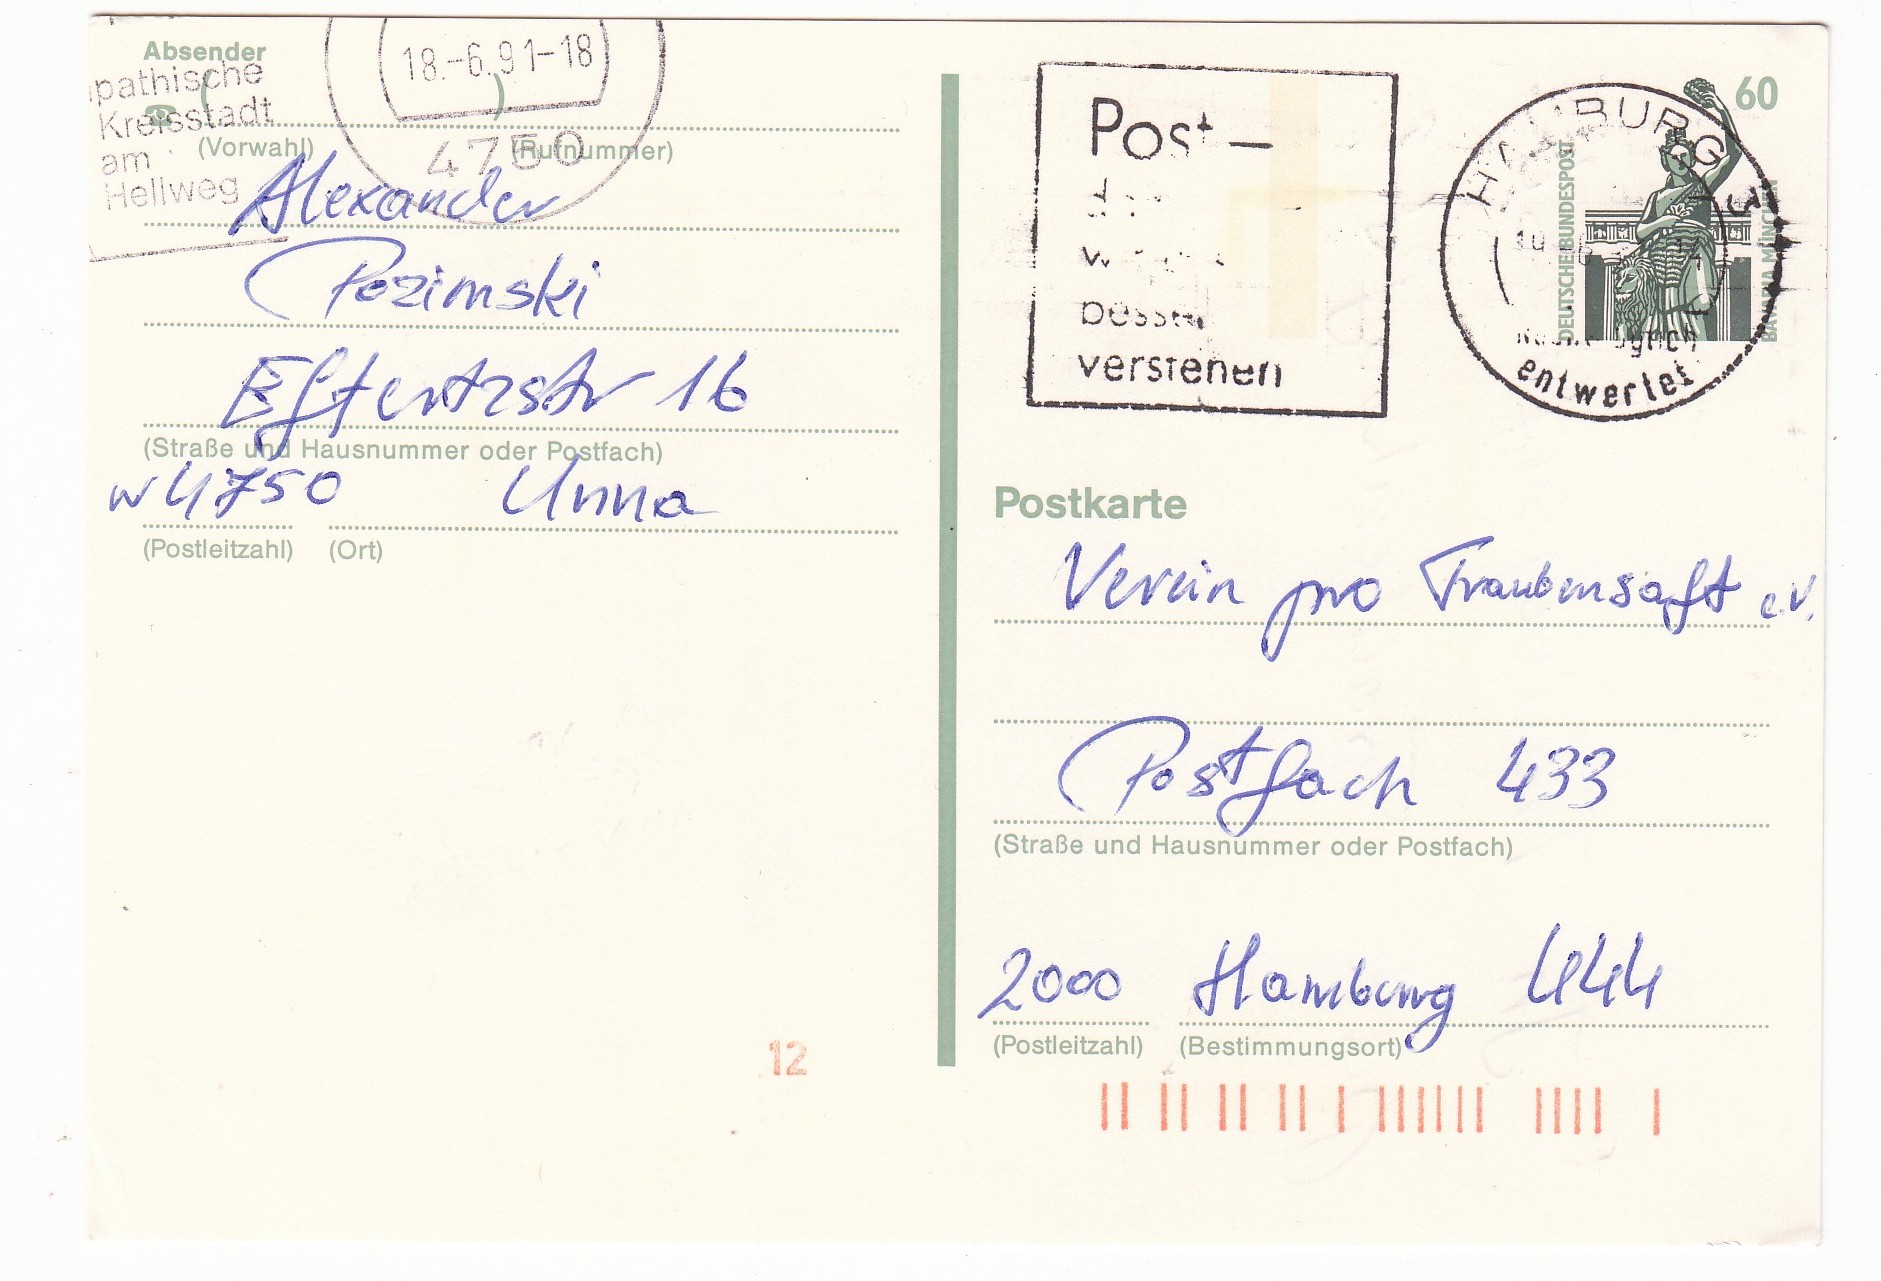 Absender
pathische
Kreisstadt
am
Hellweg
18.-6.91-18
4750
(Vorwahl)
(Rufnummer)
Alexander
Pozimski
16
(Straße und Hausnummer oder Postfach)
W 4750 Unna
(Postleitzahl) (Ort)
12
Post –
verstehen
HAMBURG
entwertet
60
DEUTSCHE BUNDESPOST
BAVARIA MÜNCHEN
Postkarte
Verein pro Traubensaft e.V.
Postfach 433
(Straße und Hausnummer oder Postfach)
2000 Hamburg 444
(Postleitzahl) (Bestimmungsort)